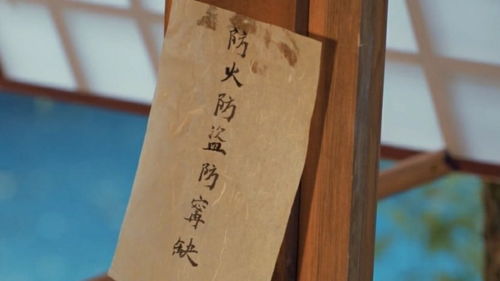 防火防盗防寗缺